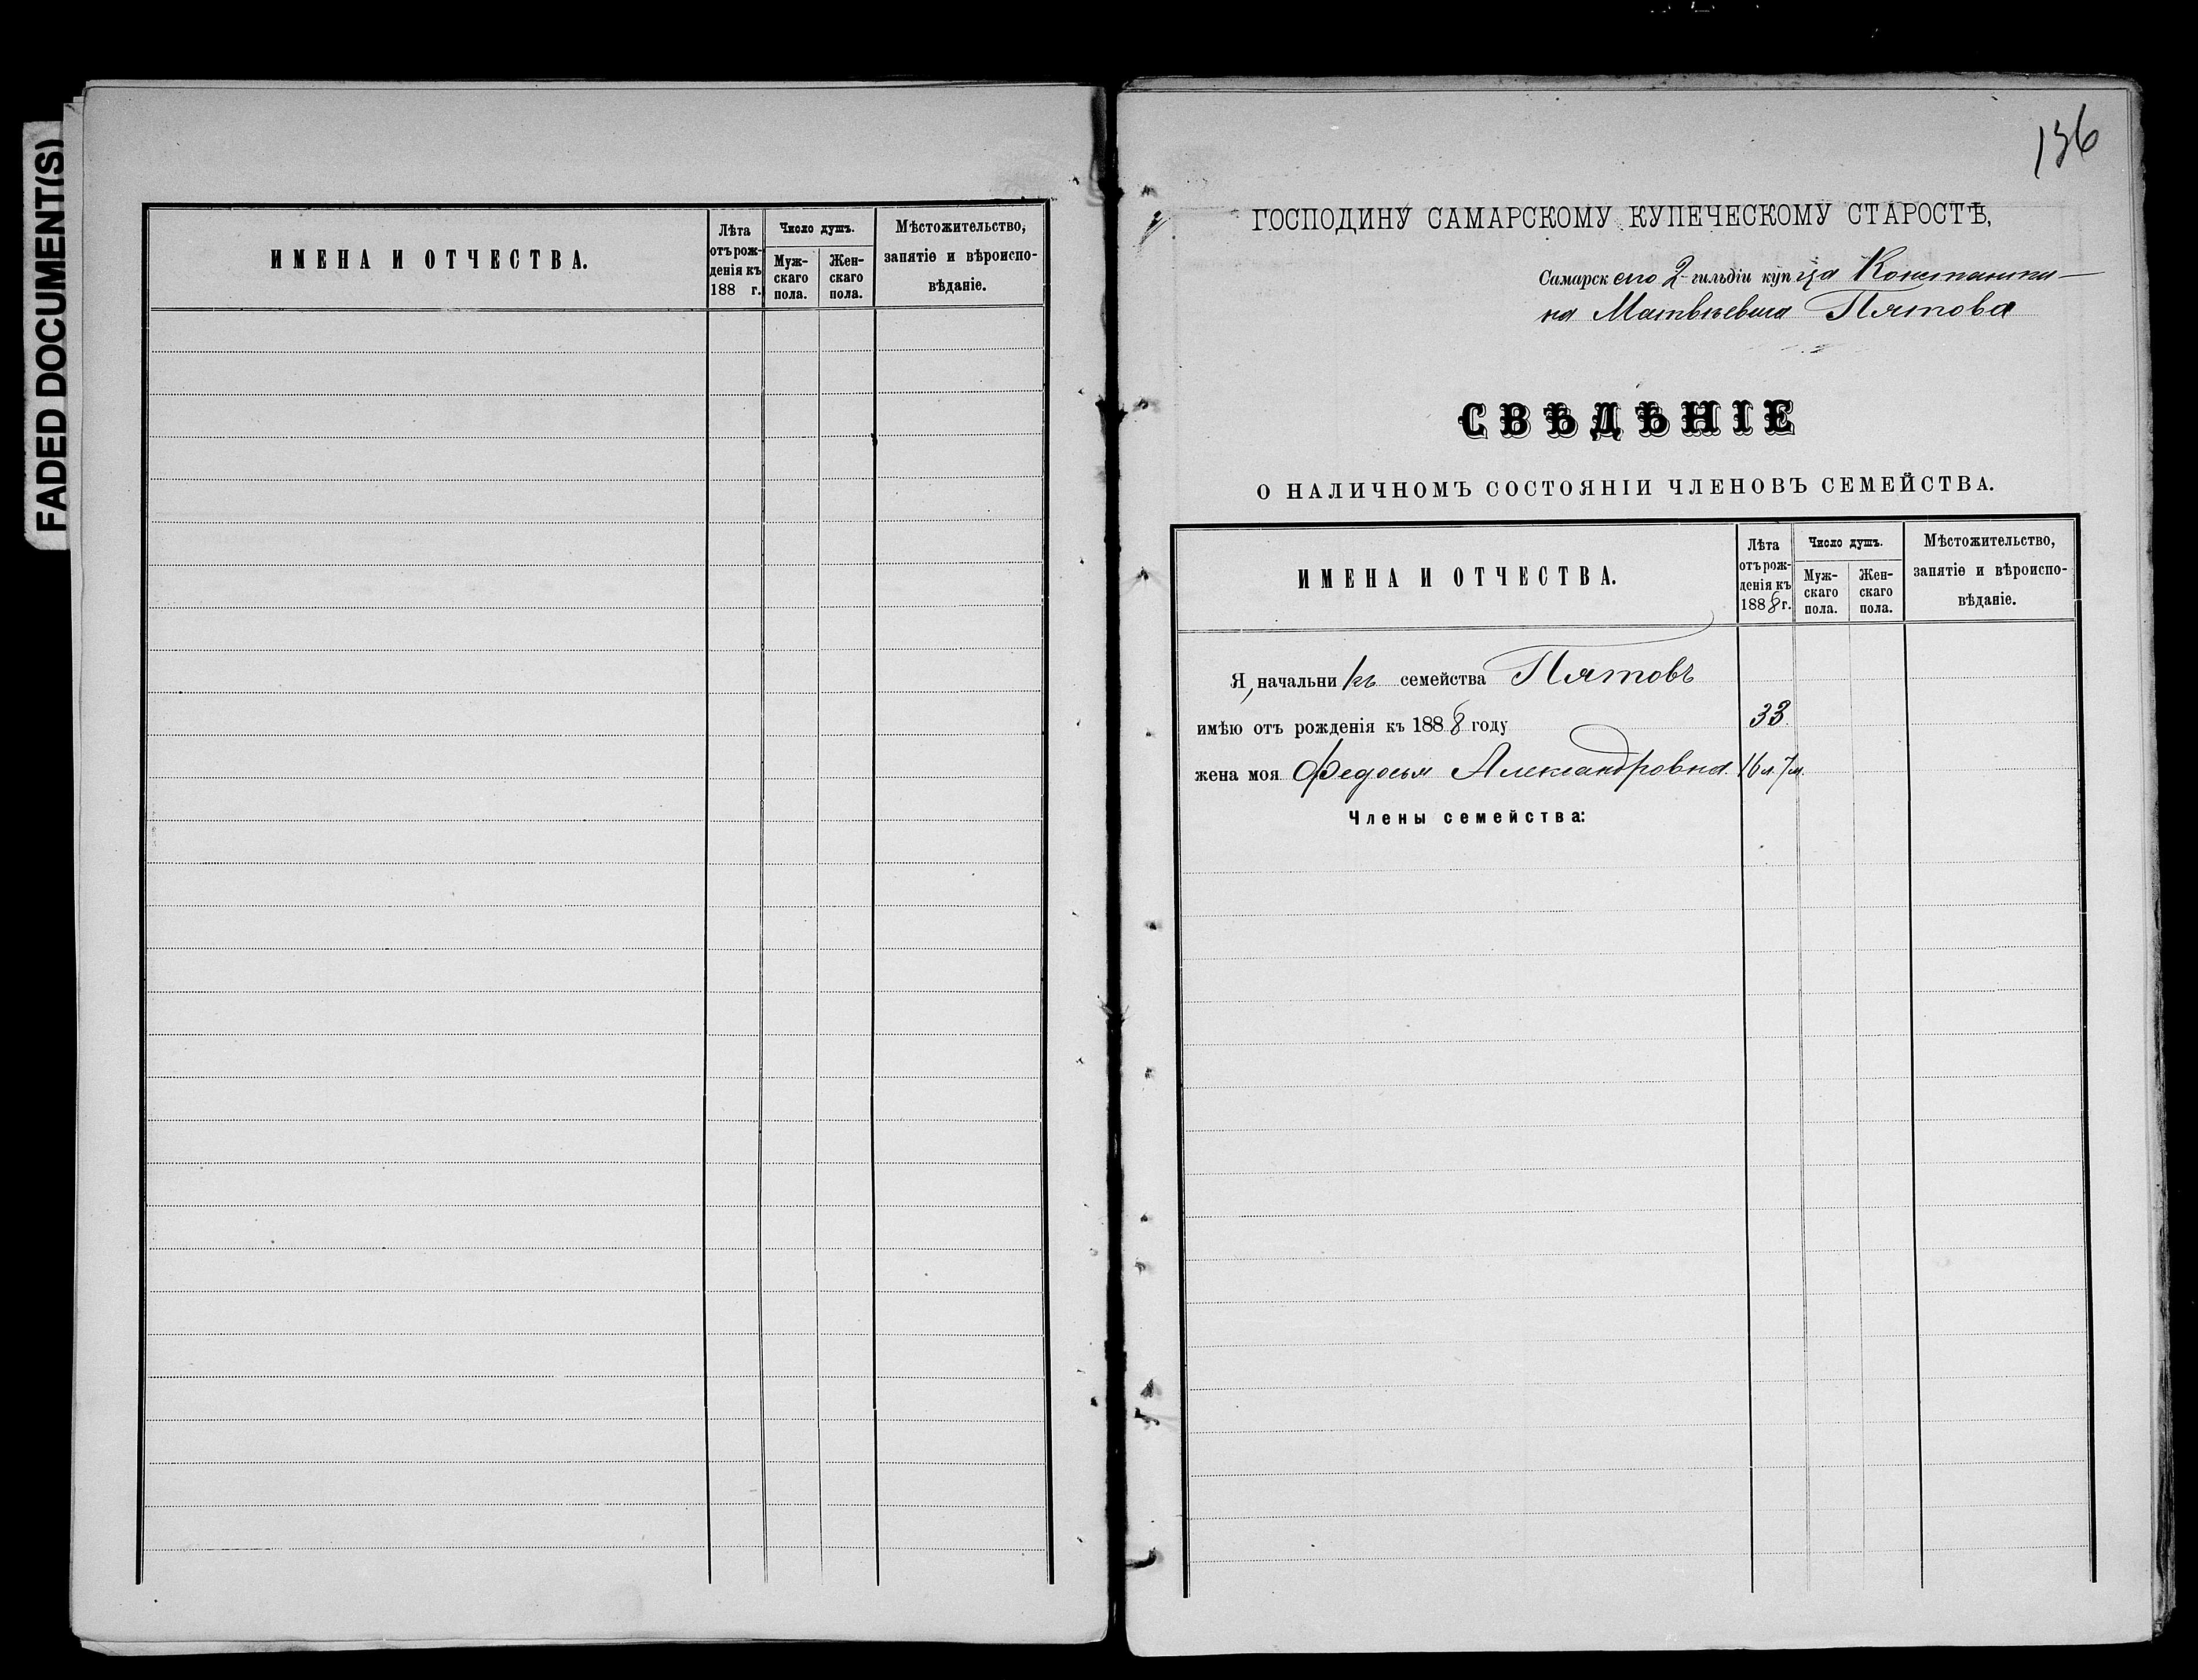 FADED DOCUMENT(S)
ИМЕНА И ОТЧЕСТВА.
Лѣта
отъ рож-
денія къ
188 г.
Число душъ.
Муж-
скаго
пола.
Жен-
скаго
пола.
Мѣстожительство,
занятіе и вѣроиспо-
вѣданіе.
136
ГОСПОДИНУ САМАРСКОМУ КУПЕЧЕСКОМУ СТАРОСТѢ,
Самарскаго 2 гильдіи купца Константи-
на Матвѣевича Пятова
СВѢДѢНІЕ
О НАЛИЧНОМЪ СОСТОЯНІИ ЧЛЕНОВЪ СЕМЕЙСТВА.
ИМЕНА И ОТЧЕСТВА.
Лѣта
отъ рож-
денія къ
1888 г.
Число душъ.
Муж-
скаго
пола.
Жен-
скаго
пола.
Мѣстожительство,
занятіе и вѣроиспо-
вѣданіе.
Я, начальникъ семейства Пятовъ
имѣю отъ рожденія къ 1888 году 33
жена моя Федосья Александровна. 16 л. 7 м.
Члены семейства: